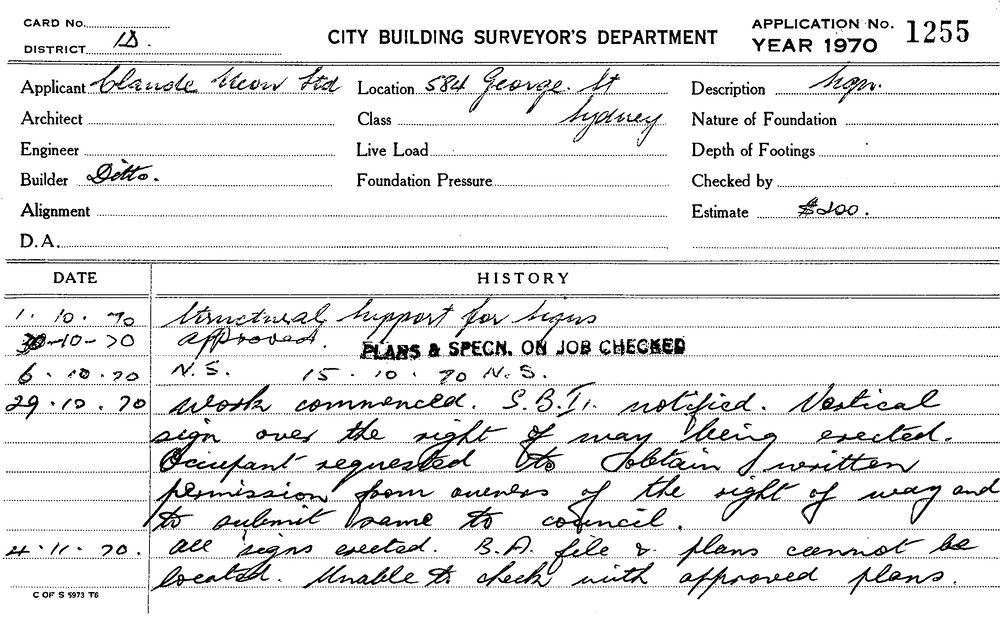 CARD No.
DISTRICT 1D.
CITY BUILDING SURVEYOR'S DEPARTMENT
APPLICATION No. 1255
YEAR 1970
Applicant Claude Neon Ltd Location 584 George. St Description Sign.
Architect Class Sydney Nature of Foundation
Engineer Live Load Depth of Footings
Builder Ditto. Foundation Pressure Checked by
Alignment Estimate $200.
D.A.
DATE HISTORY
1. 10. 70 Structural Support for Signs
-10-70 approved. PLANS & SPECN. ON JOB CHECKED
6. 10. 70 N.S. 15. 10. 70 N.S.
29. 10. 70 Work commenced. S.B.I. notified. Vertical
sign over the right of way being erected.
Occupant requested to obtain written
permission from owners of the right of way and
to submit same to council.
4. 11. 70. All signs erected. B.A. file & plans cannot be
located. Unable to check with approved plans.
C OF S 5973 T6